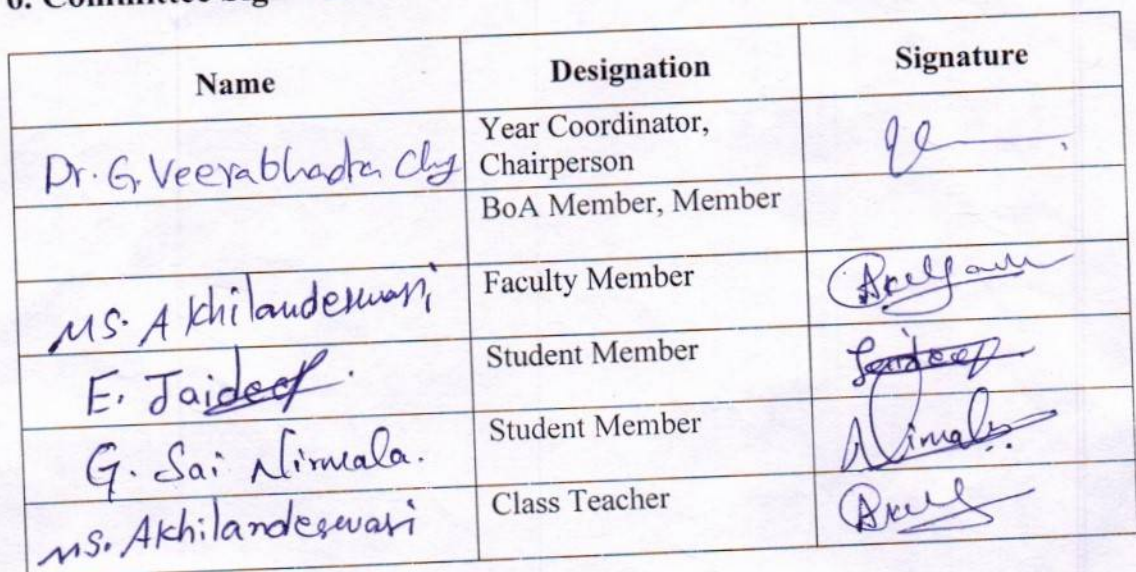 Name Designation Signature
Dr. G. Veerabhadra Chy Year Coordinator,
Chairperson
BoA Member, Member
Ms. Akhilandeswari Faculty Member
E. Jaideep. Student Member Jaideep.
G. Sai Nirmala. Student Member Nirmala.
Ms. Akhilandeswari Class Teacher